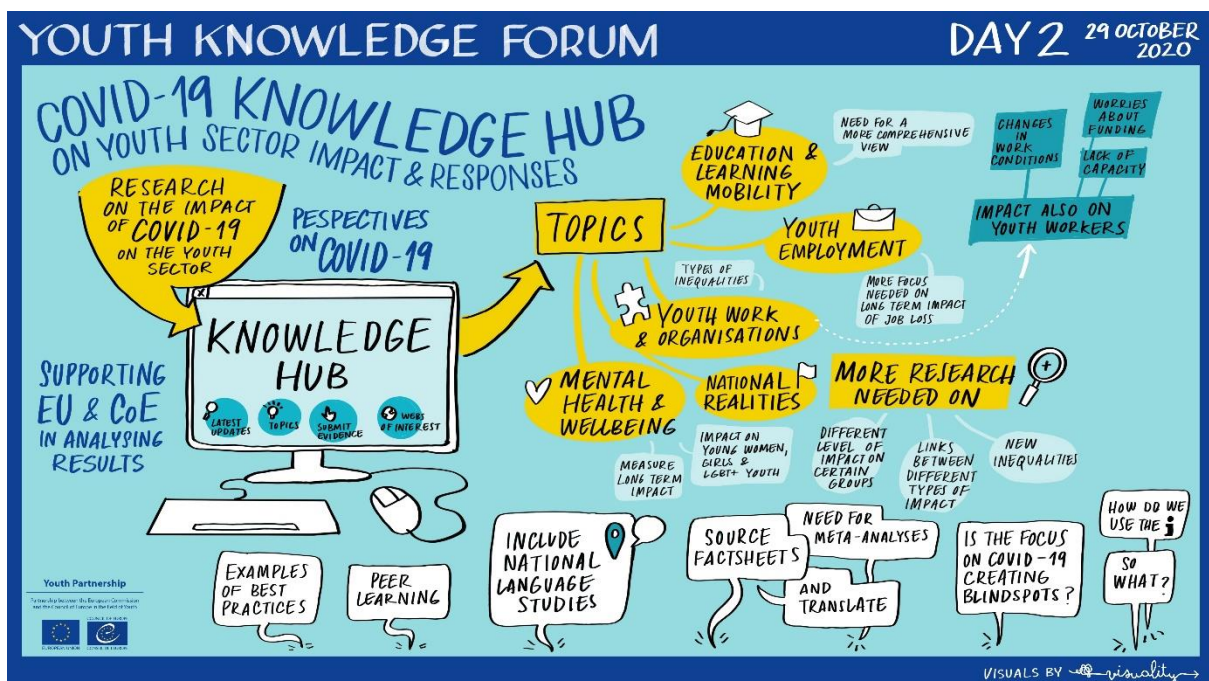 YOUTH KNOWLEDGE FORUM
DAY 2
29 OCTOBER
2020
COVID-19 KNOWLEDGE HUB
ON YOUTH SECTOR IMPACT & RESPONSES
RESEARCH
ON THE IMPACT
OF COVID-19
ON THE YOUTH
SECTOR
PESPECTIVES
ON COVID-19
SUPPORTING
EU & CoE
IN ANALYSING
RESULTS
X
KNOWLEDGE
HUB
LATEST
UPDATES
TOPICS
SUBMIT
EVIDENCE
WEBS
OF INTEREST
TOPICS
EDUCATION &
LEARNING
MOBILITY
NEED FOR A
MORE COMPREHENSIVE
VIEW
YOUTH
EMPLOYMENT
MORE FOCUS
NEEDED ON
LONG TERM IMPACT
OF JOB LOSS
TYPES OF
INEQUALITIES
YOUTH WORK
& ORGANISATIONS
CHANGES
IN
WORK
CONDITIONS
WORRIES
ABOUT
FUNDING
LACK OF
CAPACITY
IMPACT ALSO ON
YOUTH WORKERS
MENTAL
HEALTH &
WELLBEING
MEASURE
LONG TERM
IMPACT
IMPACT ON
YOUNG WOMEN,
GIRLS &
LGBT+ YOUTH
NATIONAL
REALITIES
MORE RESEARCH
NEEDED ON
DIFFERENT
LEVEL OF
IMPACT ON
CERTAIN
GROUPS
LINKS
BETWEEN
DIFFERENT
TYPES OF
IMPACT
NEW
INEQUALITIES
EXAMPLES
OF BEST
PRACTICES
PEER
LEARNING
INCLUDE
NATIONAL
LANGUAGE
STUDIES
SOURCE
FACTSHEETS
NEED FOR
META-ANALYSES
AND
TRANSLATE
IS THE FOCUS
ON COVID-19
CREATING
BLINDSPOTS?
HOW DO WE
USE THE i
SO
WHAT?
Youth Partnership
Partnership between the European Commission
and the Council of Europe in the field of Youth
EUROPEAN UNION
COUNCIL OF EUROPE
CONSEIL DE L'EUROPE
VISUALS BY visuality